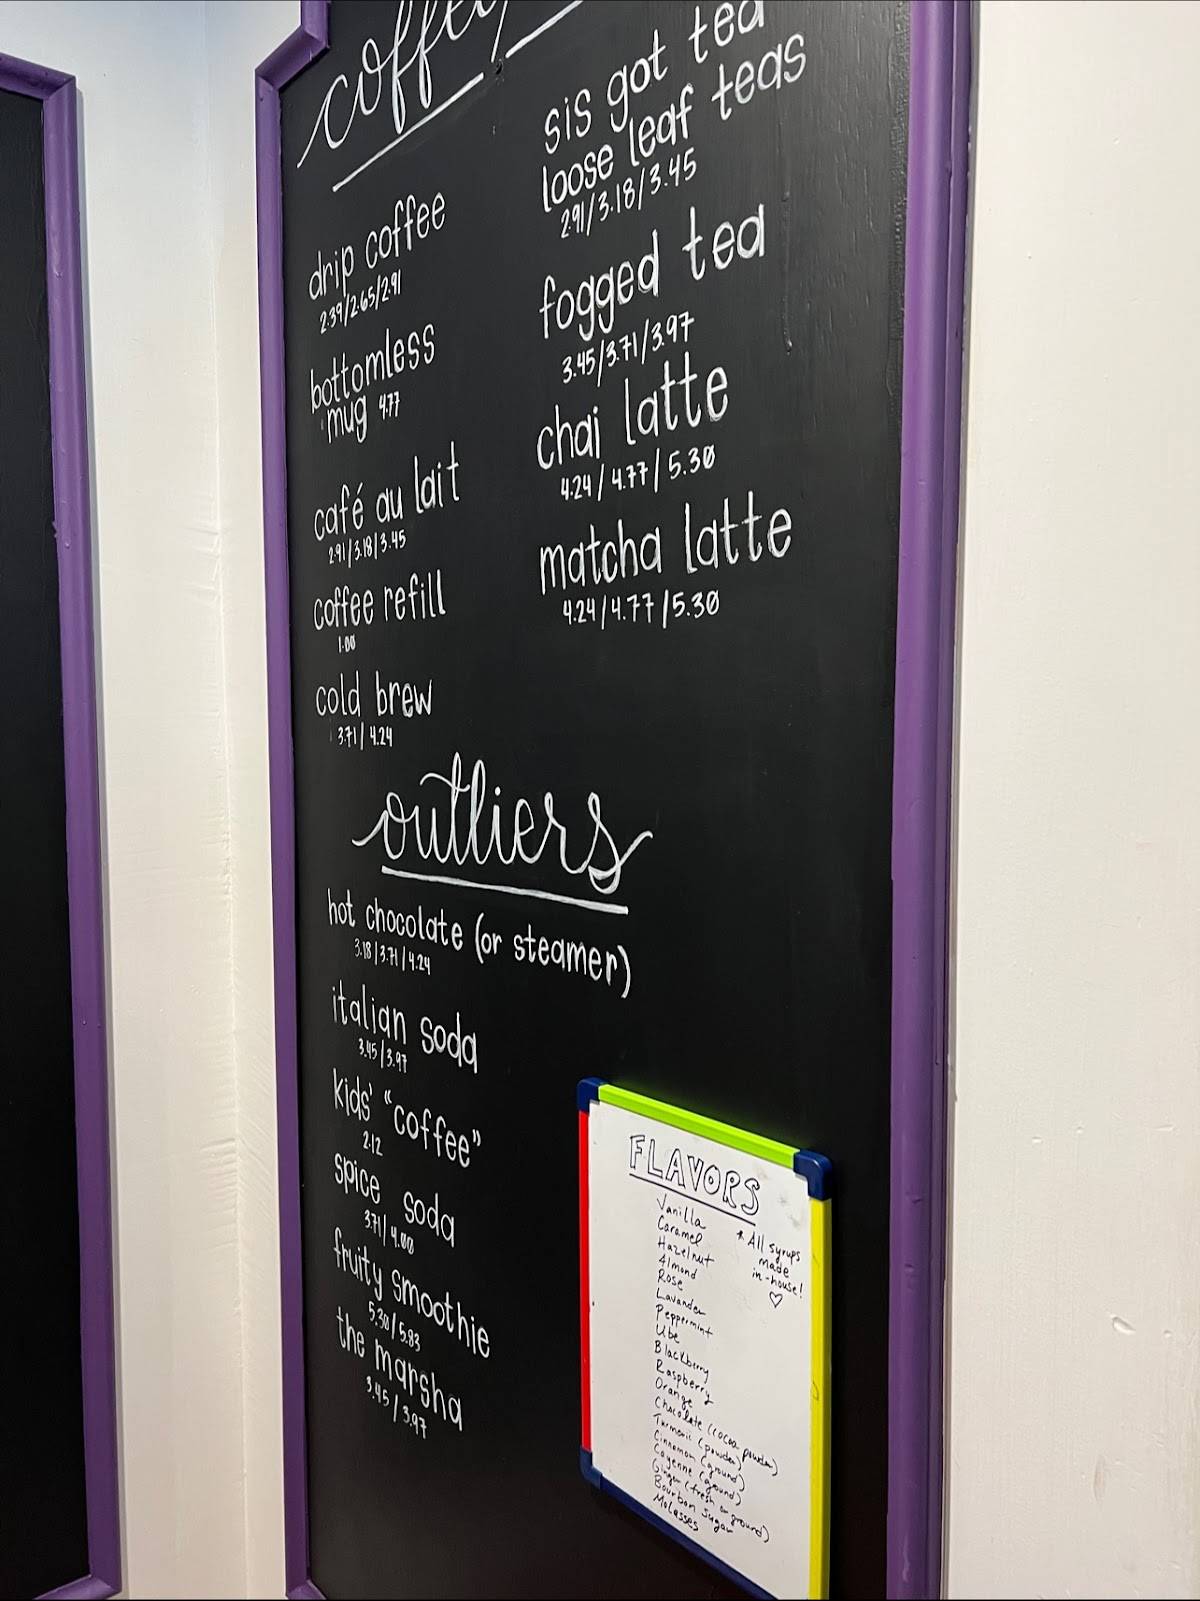 drip coffee
2.39/2.65/2.91
bottomless
mug 4.77
café au lait
2.91/3.18/3.45
coffee refill
1.00
cold brew
3.71/4.24
sis got tea
loose leaf teas
2.91/3.18/3.45
fogged tea
3.45/3.71/3.97
chai latte
4.24/4.77/5.30
matcha latte
4.24/4.77/5.30
outliers
hot chocolate (or steamer)
3.18/3.71/4.24
italian soda
3.45/3.97
kids' "coffee"
2.12
spice soda
3.71/4.00
fruity smoothie
5.30/5.83
the marsha
3.45/3.97
FLAVORS
Vanilla
Caramel
Hazelnut
Almond
Rose
Lavander
Peppermint
Ube
Blackberry
Raspberry
Orange
Chocolate (cocoa powder)
Turmeric (powder)
Cinnamon (ground)
Cayenne (ground)
Ginger (fresh or ground)
Bourbon Sugar
Molasses
* All syrups
made
in-house!